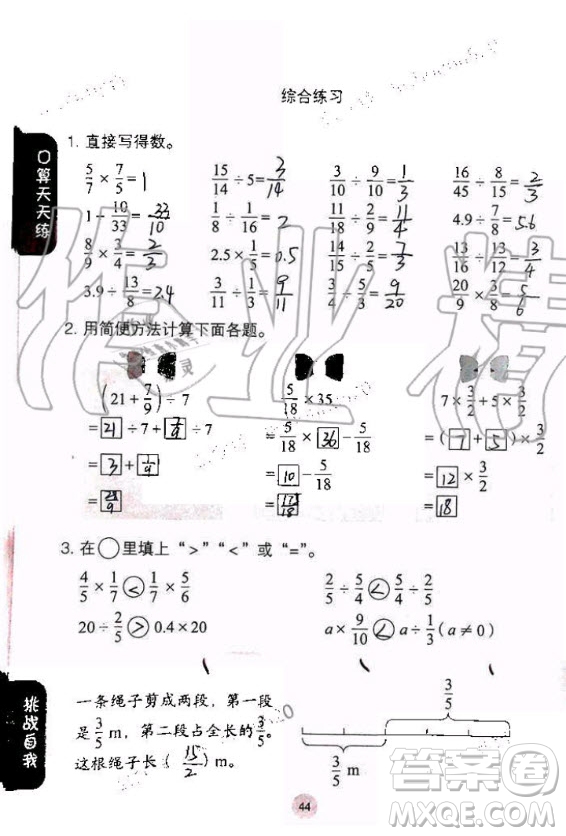 综合练习
口算天天练
1. 直接写得数。
5/7 × 7/5 = 1  15/14 ÷ 5 = 3/14  3/10 ÷ 9/10 = 1/3  16/45 ÷ 8/15 = 2/3
1 ÷ 10/33 = 33/10  1/8 ÷ 1/16 = 2  11/18 ÷ 2/9 = 11/4  4.9 ÷ 7/8 = 5.6
8/9 × 3/4 = 2/3  2.5 × 1/5 = 0.5  14/15 ÷ 2/5 = 7/3  13/16 ÷ 13/12 = 3/4
3.9 ÷ 13/8 = 2.4  3/11 ÷ 1/3 = 9/11  1/4 ÷ 5/9 = 9/20  20/9 × 3/8 = 5/6
2. 用简便方法计算下面各题。
(21 + 7/9) ÷ 7  5/18 × 35  7 × 3/2 + 5 × 3/2
= 21 ÷ 7 + 7/9 ÷ 7  = 5/18 × 36 − 5/18  = ( 7 + 5 ) × 3/2
= 3 + 1/9  = 10 − 5/18  = 12 × 3/2
= 28/9  = 175/18  = 18
3. 在○里填上“>”“<”或“=”。
4/5 × 1/7 < 1/7 × 5/6  2/5 ÷ 5/4 < 5/4 ÷ 2/5
20 ÷ 2/5 > 0.4 × 20  a × 9/10 < a ÷ 1/3 (a ≠ 0)
挑战自我
一条绳子剪成两段，第一段
是 3/5 m，第二段占全长的 3/5。
这根绳子长( 15/2 ) m。
3/5
3/5 m
44
作业精灵
答案圈
MXQE.COM